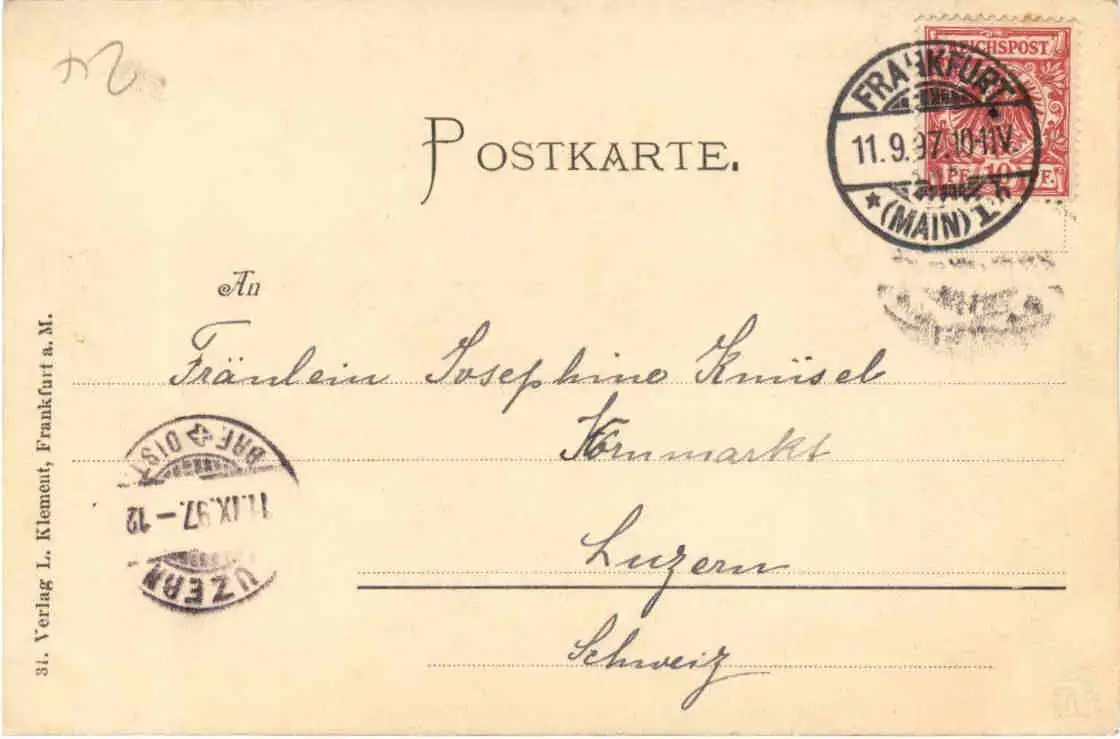 REICHSPOST
FRANKFURT
11.9.97.10-11V.
* (MAIN) 1.h
PF. 10 F.
POSTKARTE.
An
Fräulein Josephine Knüsel
Kornmarkt
Luzern
Schweiz
BRF. DIST
11.IX.97.-12
LUZERN
31. Verlag L. Klement, Frankfurt a. M.